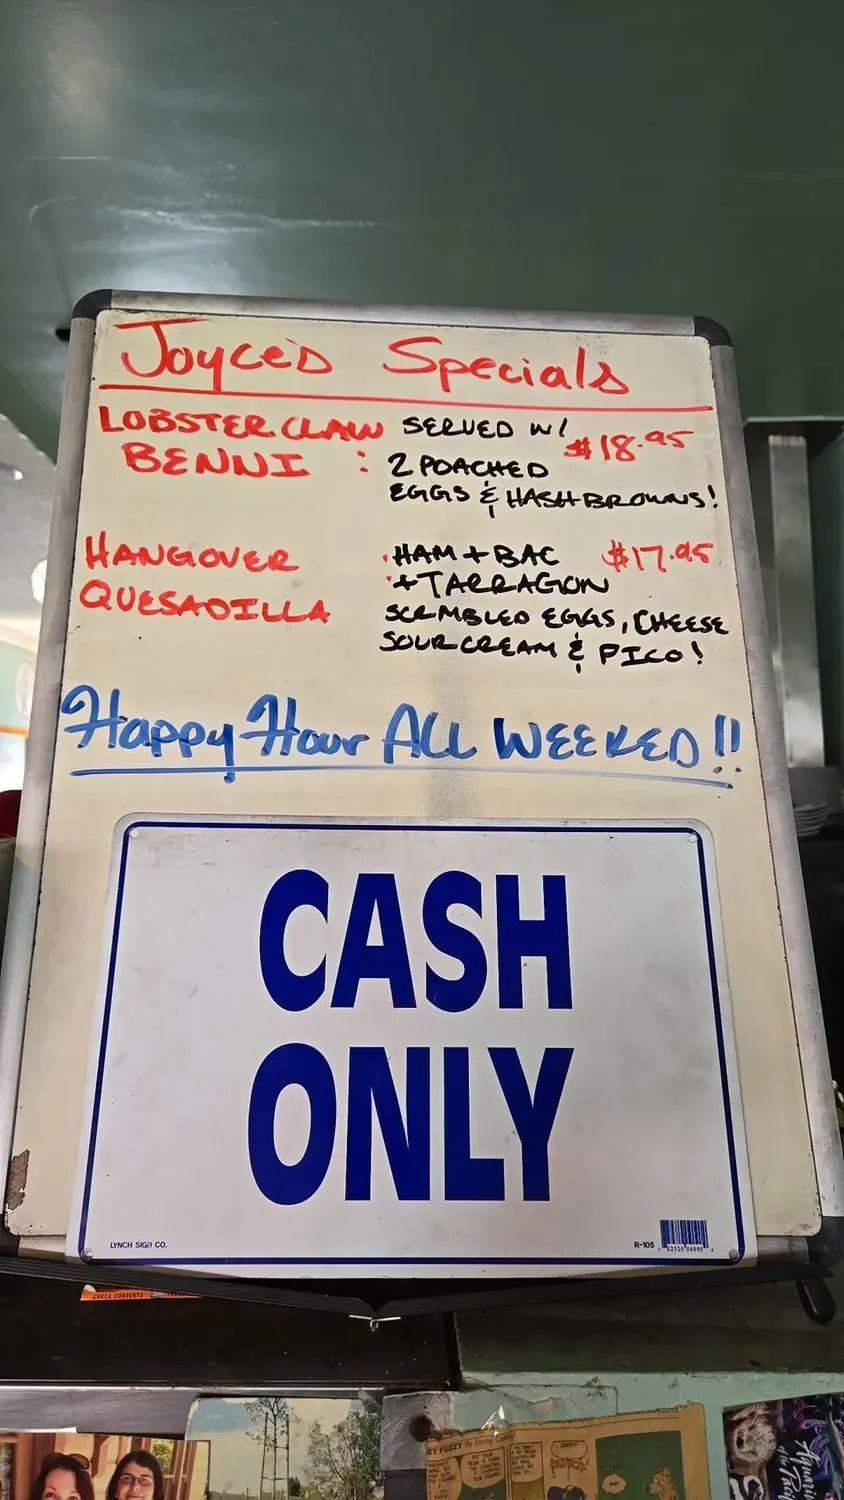 Joyce's Specials
LOBSTER CLAW SERVED W/ $18.95
BENNI : 2 POACHED
EGGS & HASHBROWNS!
HANGOVER HAM + BAC $17.95
QUESADILLA + TARRAGON
SCRMBLED EGGS, CHEESE
SOUR CREAM & PICO!
Happy Hour ALL WEEKED!!
CASH
ONLY
LYNCH SIGN CO.
R-105
CHECK CONTENTS
GET FUZZY By Darby